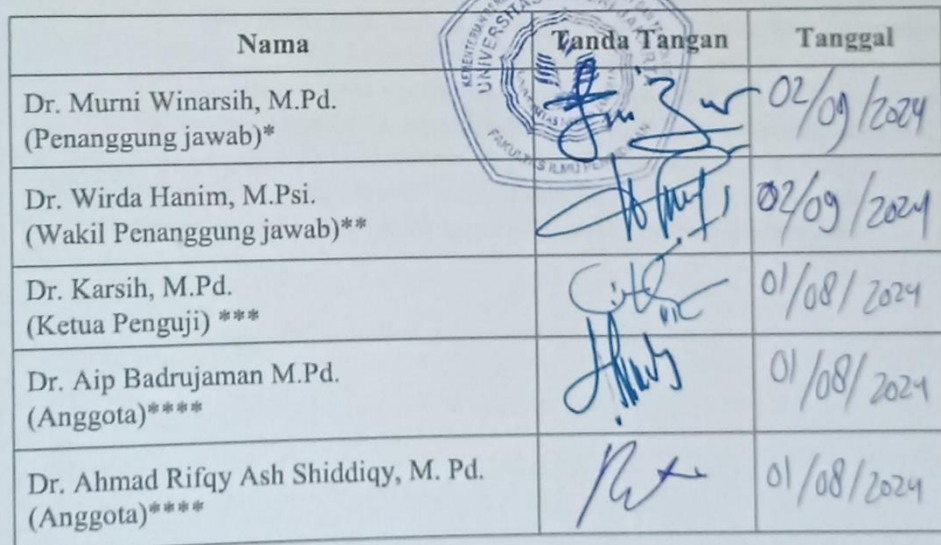 Nama Tanda Tangan Tanggal
Dr. Murni Winarsih, M.Pd.
(Penanggung jawab)* 02/09/2024
Dr. Wirda Hanim, M.Psi.
(Wakil Penanggung jawab)** 02/09/2024
Dr. Karsih, M.Pd.
(Ketua Penguji) *** 01/08/2024
Dr. Aip Badrujaman M.Pd.
(Anggota)**** 01/08/2024
Dr. Ahmad Rifqy Ash Shiddiqy, M. Pd.
(Anggota)**** 01/08/2024
UNIVERSITAS
FAKULTAS ILMU